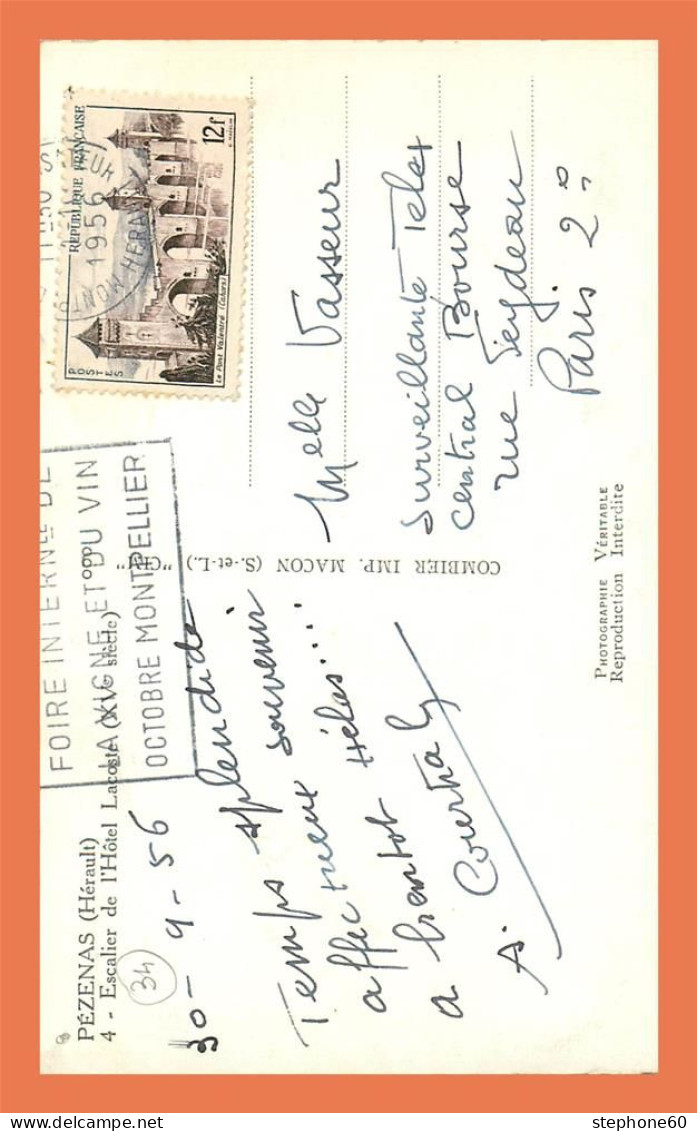 PÉZENAS (Hérault)
4 - Escalier de l'Hôtel Lacoste (XVe siècle)
34
30-9-56
Temps splendide
affectueux souvenir
a bientot Hélas....
A. Courtaly
FOIRE INTERNLE DE
LA VIGNE ET DU VIN
OCTOBRE MONTPELLIER
1956
HERAULT
RÉPUBLIQUE FRANÇAISE
12f
POSTES
Le Pont Valentré (Cahors)
COMBIER IMP. MACON (S.-et-L.) "CIM"
Melle Vasseur
Surveillante Telex
central Bourse
rue Feydeau
Paris 2°
PHOTOGRAPHIE VÉRITABLE
Reproduction Interdite
stephone60